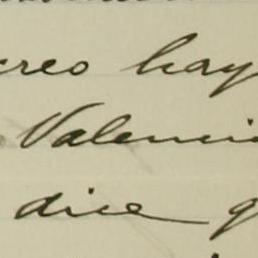 creo hay
Valenci
dice q